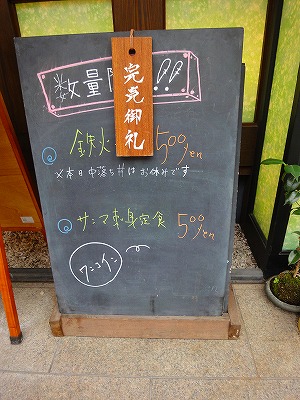 数量限!!
完売御礼
鉄火 500yen
※本日中落ち丼はお休みです
サンマ刺身定食 500yen
ワンコイン